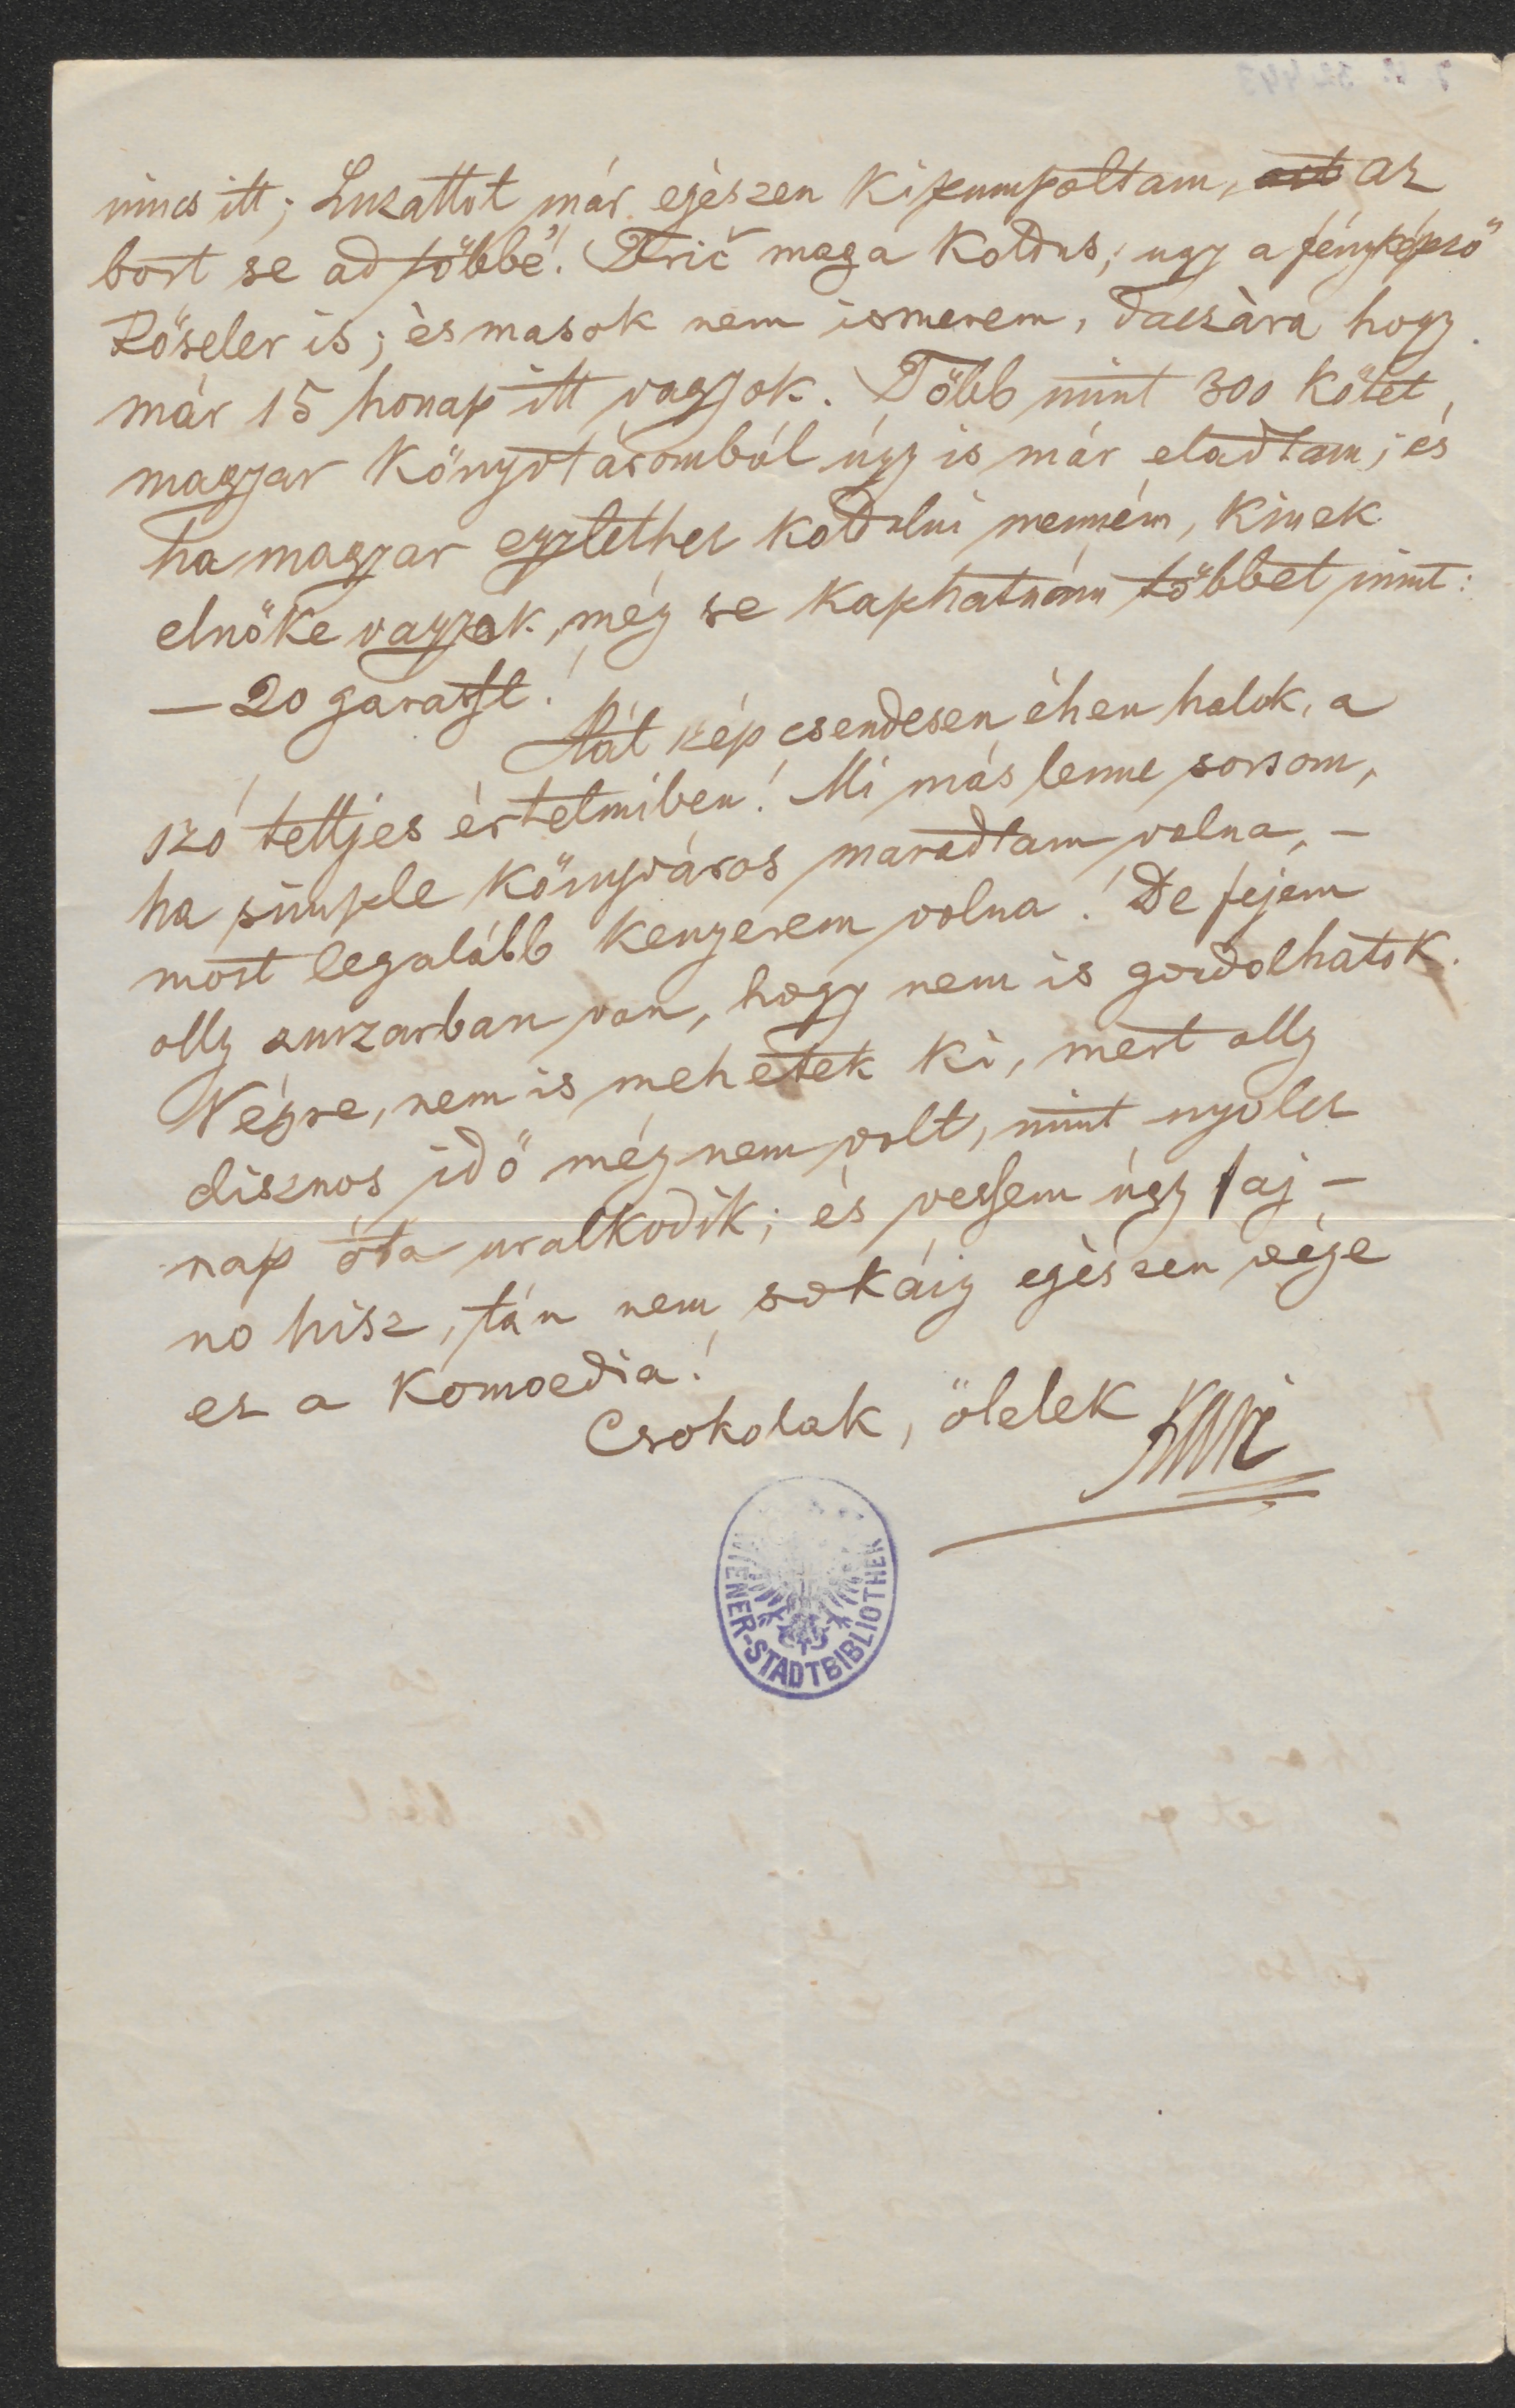 nincs itt; Luzattot már egèszen kipumpoltam, az
bort se ad többé! Frič maga koldus; ugy a fényképező
Röseler is; ès masok nem ismerem, daczàra hogy
már 15 honap itt vagyok. Több mint 300 kötet
magyar könyvtáromból úgy is már eladtam; és
ha magyar egylethez koldulni menném, kinek
elnöke vagyok, még se kaphatnám többet mint:
— 20 garast!
Hát szép csendesen éhen halok, a
szó teltjes értelmiben! Mi más lenne sorsom,
ha simple könyváros maradtam volna, —
most legalább kenyerem volna! De fejem
olly zurzarban van, hogy nem is gondolhatok.
Végre, nem is mehetek ki, mert olly
disznos idő még nem volt, mint nyolcz
nap óta uralkodik; és vessem úgy faj-
no hisz, tán nem sokáig egészen vége
ez a komoedia!
Csokolak, ölelek Kari
WIENER-STADTBIBLIOTHEK